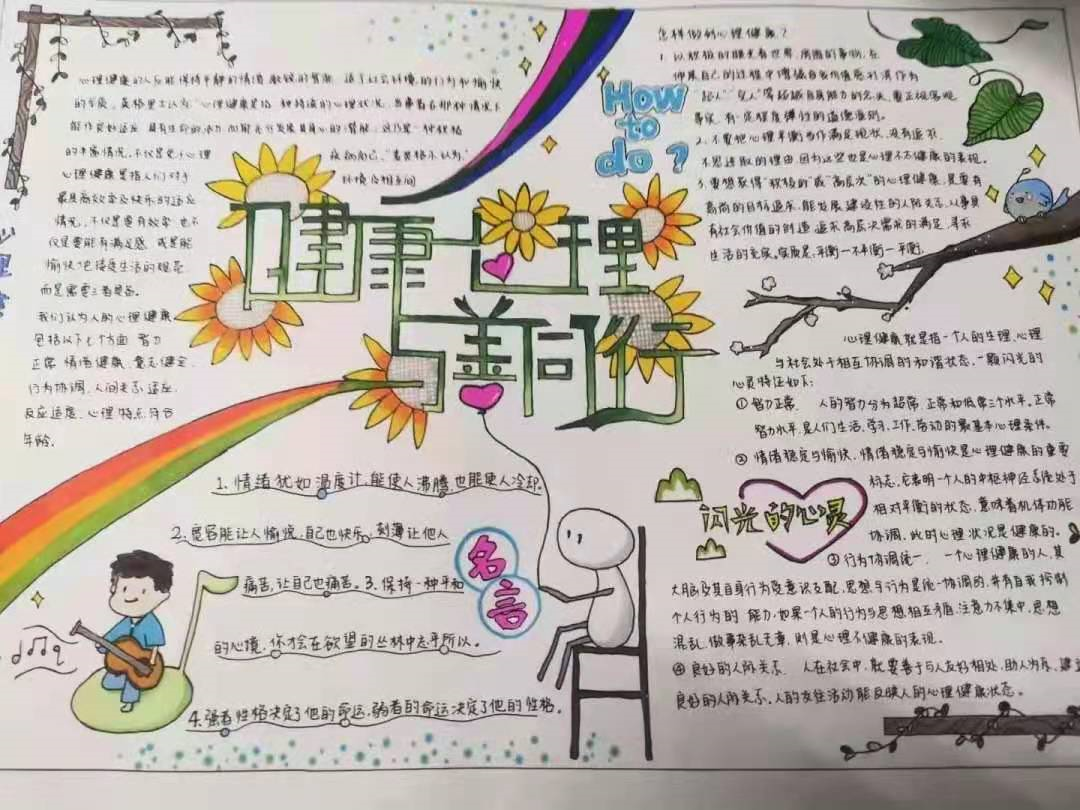 心理健康的人反能保持平静的情绪,敏锐的智能,适于社会环境的行为和愉快
的气质。英格里士认为:"心理健康是指一种持续的心理状况,当事者在那种情况下
能作良好适应,具有生命的活力,而能充分发展其身心的潜能,这乃是一种积极
的丰富情况,不仅是免于心理
疾病而已。"麦灵格尔认为:
心理健康是指人们对于
环境及相互间
具最高效率及快乐的适应
情况,不仅是要有效率,也不
仅是要能有满足感,或是能
愉快
而是需要三者具备。
我们认为人的心理健康
包括以下七个方面:智力
正常,情绪健康,意志健全,
行为协调,人间关系适应,
反应适度,心理特点符合
年龄。
健康心理
与善同行
How
to
do?
怎样做到心理健康?
1.以积极的眼光看世界,周围的事物,在
"超人""女人"等超越自身能力的念头,要正视客观
事实,有一定程度弹性的道德准则。
2.不要把心理平衡当作满足现状,没有追求,
不思进取的理由,因为这些也是心理不太健康的表现。
3.要想获得"积极的"或"高层次"的心理健康,是要有
高尚的目标追求,能发展建设性的人际关系,从事具
有社会价值的创造,追求高层次需求的满足,寻求
生活的充实。实质是:平衡一不平衡一平衡。
心理健康就是指一个人的生理、心理
与社会处于相互协调的和谐状态,一颗闪光的
心灵特征如下:
①智力正常. 人的智力分为超常、正常和低常三个水平。正常
智力水平,是人们生活、学习、工作、劳动的最基本心理条件。
②情绪稳定与愉快,情绪稳定与愉快是心理健康的重要
标志,它表明一个人的中枢神经系统处于
相对平衡的状态,意味着机体功能
协调,此时心理状况是健康的。
闪光的心灵
③行为协调统一. 一个心理健康的人,其
大脑及其自身行为受意识支配,思想与行为是统一协调的,并有自我控制
个人行为的能力,如果一个人的行为与思想相互矛盾,注意力不集中,思想
混乱,做事杂乱无章,则是心理不健康的表现。
④良好的人际关系. 人在社会中,就要善于与人友好相处,助人为乐,建立
良好的人际关系,人的交往活动能反映人的心理健康状态。
名言
1.情绪犹如温度计,能使人沸腾,也能使人冷却.
2.宽容能让人愉悦,自己也快乐,刻薄让他人
痛苦,让自己也痛苦。3.保持一种平和
的心境,你才会在欲望的丛林中忘乎所以。
4.强者性格决定了他的命运,弱者的命运决定了他的性格。